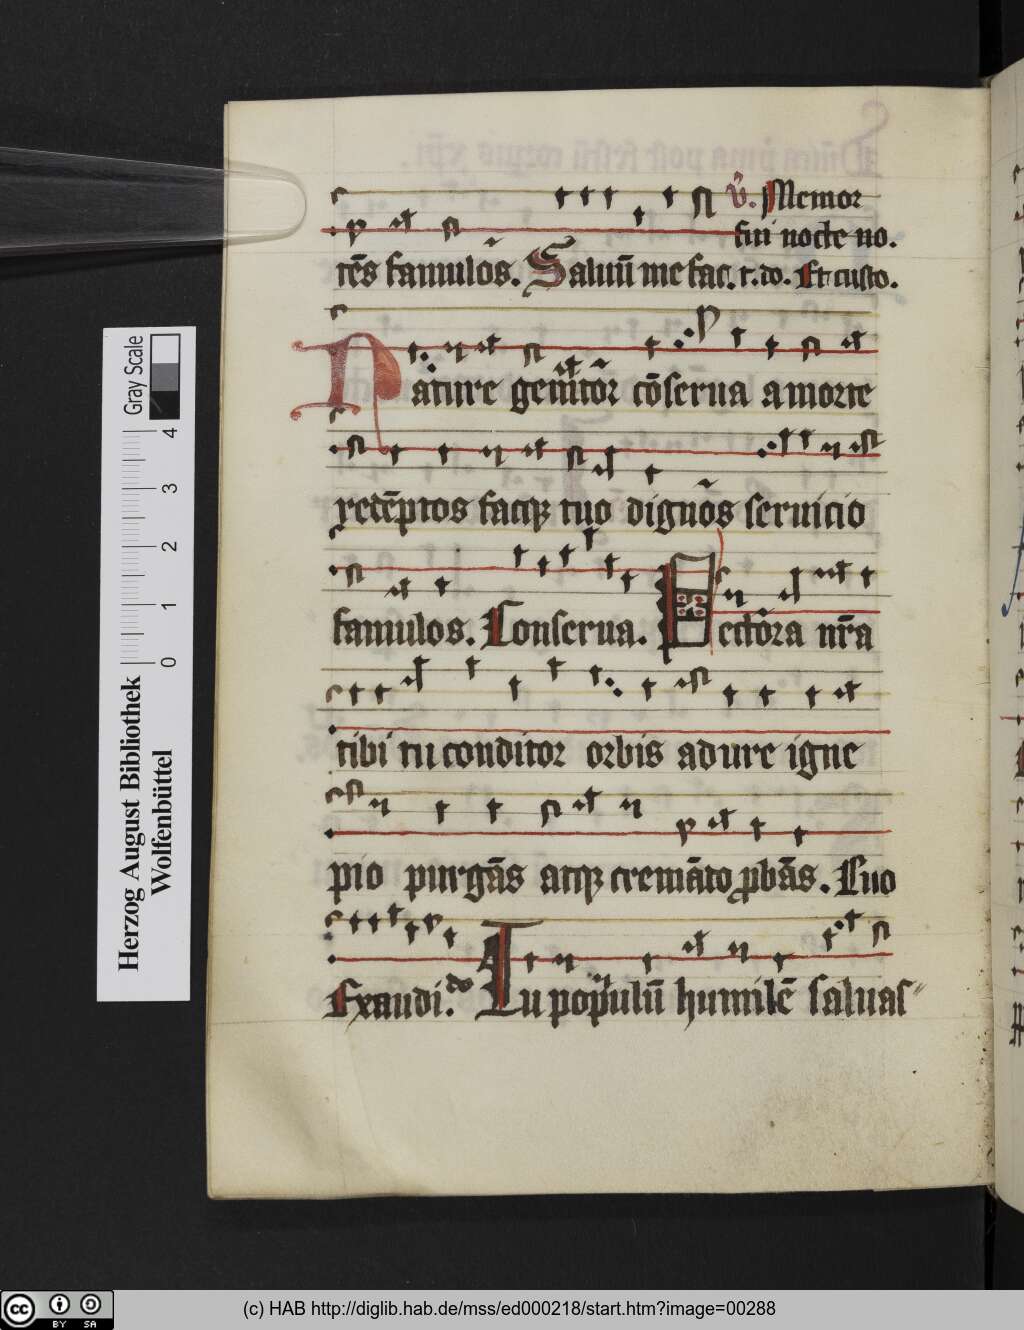 v̄. Memor
fui nocte no.
tēs famulos. Saluū me fac. r. do. Et custo.
Nature genitor cōserua a morte
redēptos facq3 tuo dignos seruicio
famulos. Conserua. Pectora nr̄a
tibi tu conditor orbis adure igne
pio purgās atq3 cremādo ꝓbās. Quo
Exaudi. do Tu populū humilē saluas
Gray Scale
4
3
2
1
0
Herzog August Bibliothek
Wolfenbüttel
cc BY SA
(c) HAB http://diglib.hab.de/mss/ed000218/start.htm?image=00288